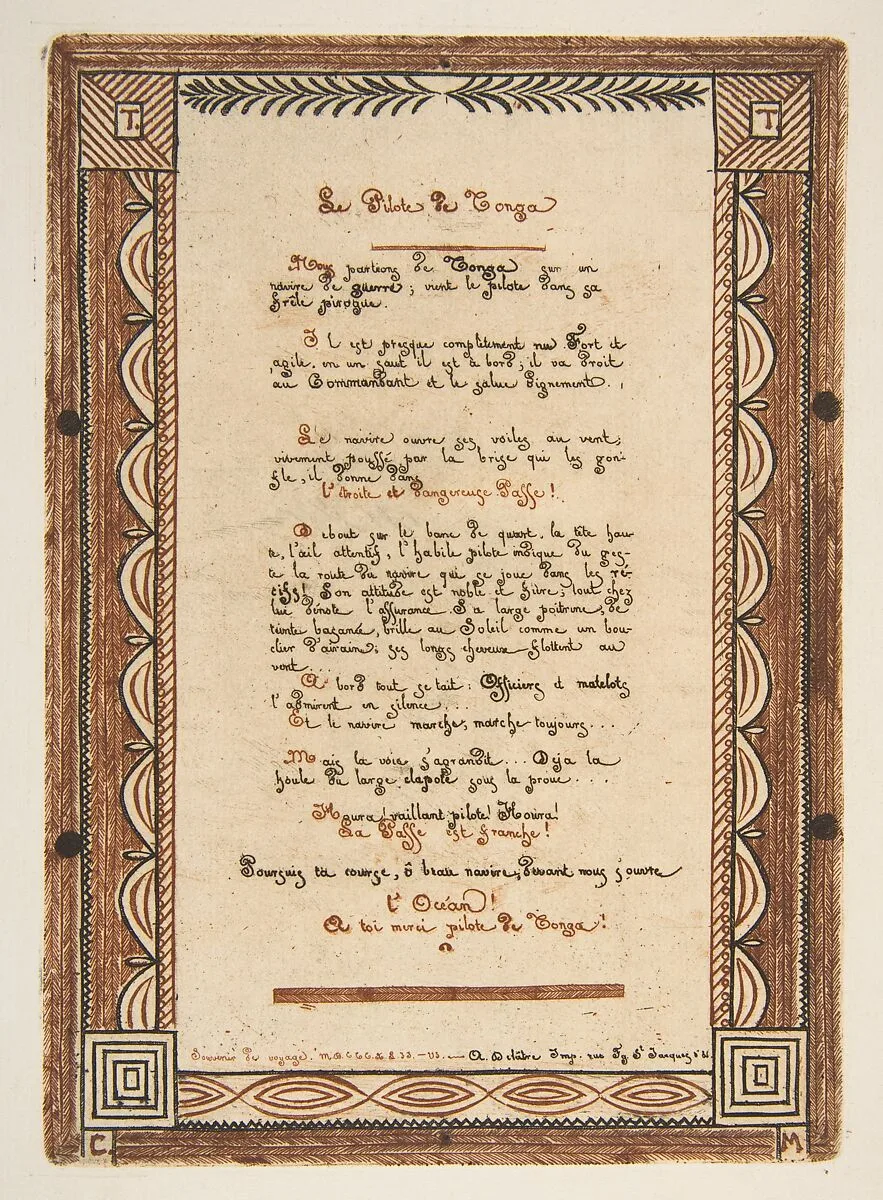 T. T
Le Pilote de Tonga
Nous partions de Tonga sur un
navire de guerre ; vient le pilote dans sa
frêle pirogue.
Il est presque complètement nu. Fort et
agile, en un saut il est à bord ; il va droit
au Commandant et le salue dignement.
Le navire ouvre ses voiles au vent ;
vivement poussé par la brise qui les gon-
fle, il donne dans
l'étroite et dangereuse Passe !
Debout sur le banc de quart, la tête hau-
te, l'œil attentif, l'habile pilote indique du ges-
te la route du navire qui se joue dans les ré-
cifs ! Son attitude est noble et fière ; tout chez
lui dénote l'assurance. Sa large poitrine, de
teinte basanée, brille au Soleil comme un bou-
clier d'airain ; ses longs cheveux flottent au
vent...
A bord tout se tait : Officiers et matelots
l'admirent en silence...
Et le navire marche, marche toujours...
Mais la voie s'agrandit... Déja la
houle du large clapote sous la proue....
Houra ! vaillant pilote ! Houra !
La Passe est franche !
Poursuis ta course, ô beau navire, devant nous s'ouvre
l'Océan !
A toi merci pilote de Tonga !
Souvenir de voyage. A. Delâtre Imp. rue Fg. St. Jacques
C. M